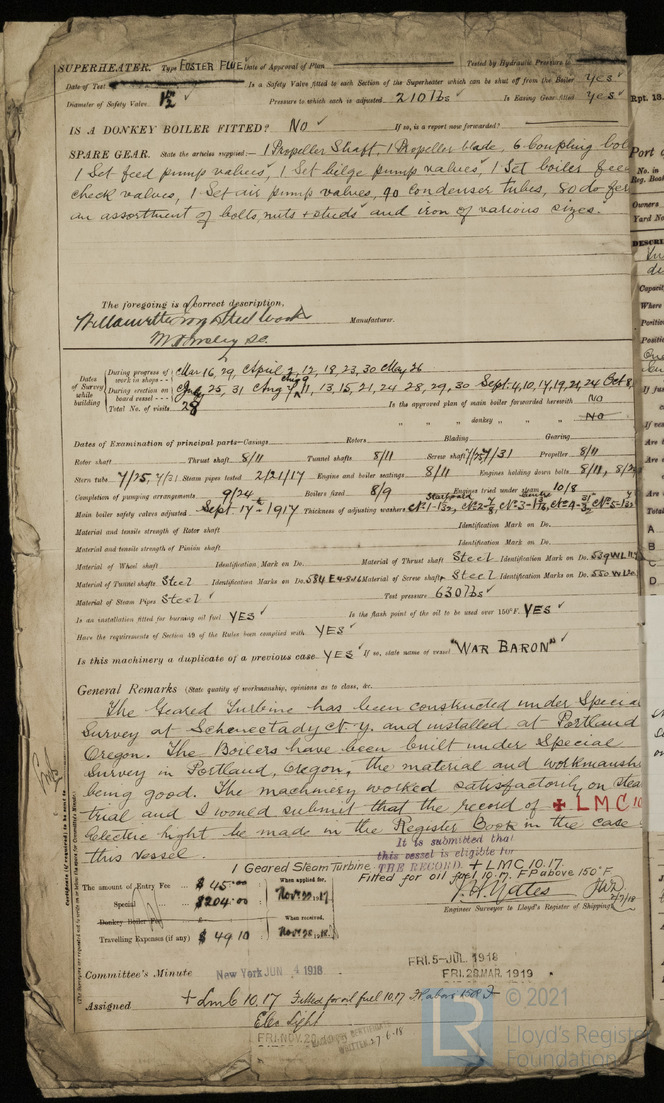 SUPERHEATER. Type FOSTER FLUE Date of Approval of Plan Tested by Hydraulic Pressure to
Date of Test Is a Safety Valve fitted to each Section of the Superheater which can be shut off from the Boiler Yes ✓
Diameter of Safety Valve Pressure to which each is adjusted 210 lbs ✓ Is Easing Gear fitted Yes ✓
IS A DONKEY BOILER FITTED? No ✓ If so, is a report now forwarded?
SPARE GEAR. State the articles supplied:— 1 Propeller Shaft, 1 Propeller blade, 6 Coupling bol
1 Set feed pump valves, 1 Set bilge pump valves, 1 Set boiler fee
check valves, 1 Set air pump valves, 90 condenser tubes, 80 do fer
an assortment of bolts, nuts + studs and iron of various sizes.
The foregoing is a correct description,
Willamette Iron & Steel Works Manufacturer.
Dates of Survey while building
During progress of work in shops - - Mar 16, 29, April 2, 12, 18, 23, 30 May 26
During erection on board vessel - - - July 25, 31 Aug 7, Aug 9, 11, 13, 15, 21, 24 28, 29, 30 Sept. 4, 10, 17, 19, 21, 24 Oct 8,
Total No. of visits 28 Is the approved plan of main boiler forwarded herewith NO
" " " donkey " " " NO
Dates of Examination of principal parts—Casings Rotors Blading Gearing
Rotor shaft Thrust shaft 8/11 Tunnel shafts 8/11 Screw shaft 7/25 7/31 Propeller 8/11
Stern tube 7/25, 7/31 Steam pipes tested 2/21/17 Engine and boiler seatings 8/11 Engines holding down bolts 8/11, 8/2
Completion of pumping arrangements 9/24 Boilers fixed 8/9 Engines tried under steam 10/8
Main boiler safety valves adjusted Sept 17th 1917 Thickness of adjusting washers
Material and tensile strength of Rotor shaft Identification Mark on Do.
Material and tensile strength of Pinion shaft Identification Mark on Do.
Material of Wheel shaft Identification Mark on Do. Material of Thrust shaft Steel Identification Mark on Do.
Material of Tunnel shafts Steel Identification Marks on Do. Material of Screw shafts Steel Identification Marks on Do.
Material of Steam Pipes Steel ✓ Test pressure 630 lbs ✓
Is an installation fitted for burning oil fuel YES ✓ Is the flash point of the oil to be used over 150°F. YES ✓
Have the requirements of Section 49 of the Rules been complied with YES ✓
Is this machinery a duplicate of a previous case YES ✓ If so, state name of vessel "WAR BARON" ✓
General Remarks (State quality of workmanship, opinions as to class, &c.
The Geared Turbine has been constructed under Specia
Survey at Schenectady N.Y. and installed at Portland
Oregon. The Boilers have been built under Special
Survey in Portland, Oregon, the material and workmansh
being good. The machinery worked satisfactorily on stea
trial and I would submit that the record of + LMC 10
Electric light be made in the Register Book in the case
this vessel.
It is submitted that
this vessel is eligible for
THE RECORD. + LMC 10.17.
1 Geared Steam Turbine
Fitted for oil fuel 10.17. FP above 150°F.
The amount of Entry Fee ... $ 45.00 When applied for,
Special ... $204.00
Donkey Boiler Fee ... When received,
Travelling Expenses (if any) $ 49.10
Engineer Surveyor to Lloyd's Register of Shipping.
Committee's Minute New York JUN 4 1918
FRI. 5-JUL. 1918
FRI. 28 MAR. 1919
Assigned + LMC 10.17 Fitted for oil fuel 10.17 FP above 150° F
Elec Light
FRI. NOV. 29
© 2021
Lloyd's Registe
Foundation
LR
Rpt. 13.
Port o
No. in
Reg. Book
Owners
Yard No
DESCRI
Capacit
Where
Positio
Positio
If fus
If ves
Are t
Are t
Are
Are
Total
A
B
C
D